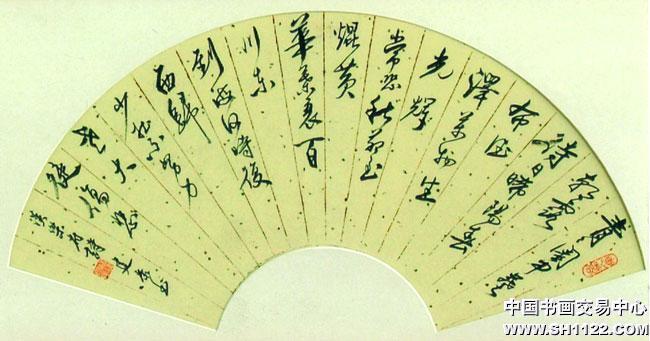 青園中葵
朝露
待日晞陽春
布德
澤萬物生
光輝
常恐秋節至
焜黃
華葉衰百
川东
到海何時復
西歸
少壯不努力
老大
徒傷悲
漢樂府詩
中国书画交易中心
www.SH1122.com